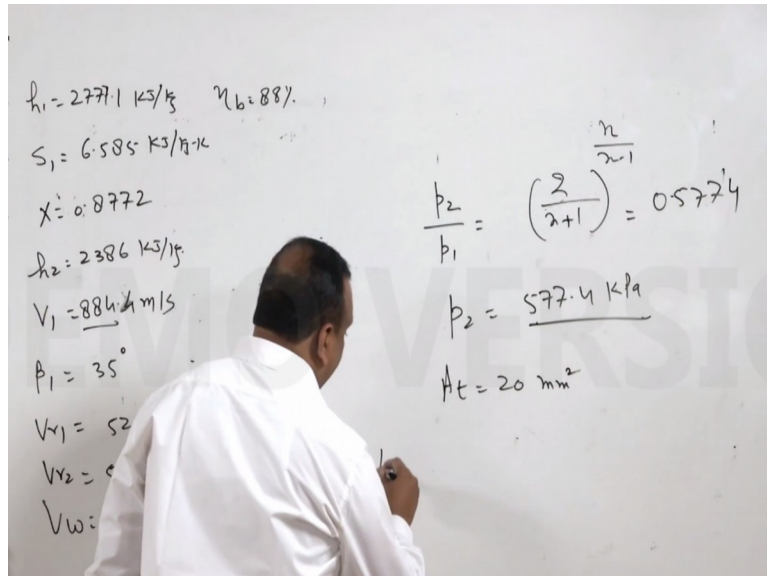 h₁ = 2777.1 KJ/kg   η b = 88%.
S₁ = 6.585 KJ/kg-K
x = 0.8772
h₂ = 2386 KJ/kg.
V₁ = 884.4 m/s
β₁ = 35°
Vr₁ = 52
Vr₂ =
Vw =
p₂/p₁ = (2/(n+1))^(n/(n-1)) = 0.5774
p₂ = 577.4 KPa
At = 20 mm²